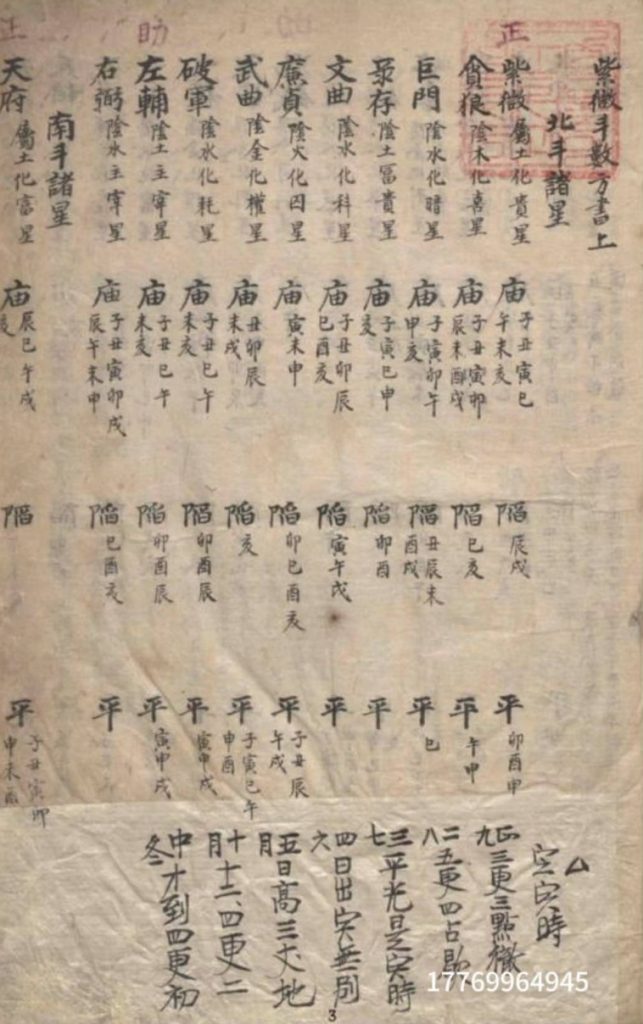 紫微斗數万書上
北斗諸星
正 紫微 屬土化貴星 庙 子丑寅巳午未亥 陷 辰戌 平 卯酉申
貪狼 陰木化喜星 庙 子丑寅卯辰未酉戌 陷 巳亥 平 午申
巨門 陰水化暗星 庙 子寅卯午申亥 陷 丑辰未酉戌 平 巳
录存 陰土冨貴星 庙 子寅巳申亥 陷 卯酉 平
文曲 陰水化科星 庙 子丑卯辰巳酉亥 陷 寅午戌 平
廉貞 陰火化囚星 庙 寅未申 陷 卯巳酉亥 平 子丑辰午戌
武曲 陰金化權星 庙 丑卯辰未戌 陷 亥 平 子寅巳午申酉
破軍 陰水化耗星 庙 子丑巳午未亥 陷 卯酉辰 平 寅申戌
助 左輔 陰土主宰星 庙 子丑巳午未亥 陷 卯酉辰 平 寅申戌
右弼 陰水主宰星 庙 子丑寅卯戌辰午未申 陷 巳酉亥 平
南斗諸星
正 天府 屬土化富星 庙 辰巳午戌亥 陷 平 子丑寅卯申未酉
定寅時
正九三更三點徹
二八五更四占歇
三七平光是寅時
四六日出寅無別
五月日高三丈地
十月十二四更二
中冬才到四更初
17769964945
3